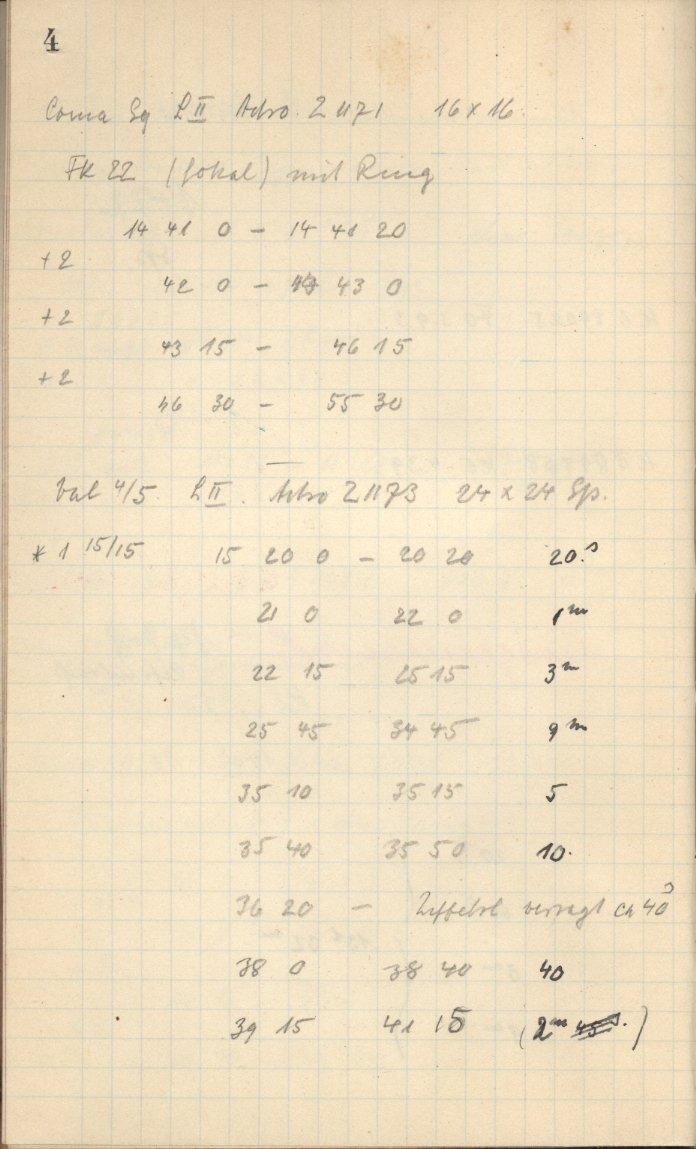 4
Coma Sq L II Astro. Z 1171 16 x 16
FK 22 (fokal) mit Ring
14 41 0 — 14 41 20
+2
42 0 — 43 0
+2
43 15 — 46 15
+2
46 30 — 55 30
4/5 L II. Astro Z 1173 24 x 24 Sp.
* 1 15/15 15 20 0 — 20 20 20.s
21 0 22 0 1m
22 15 25 15 3m
25 45 34 45 9m
35 10 35 15 5
35 40 35 50 10.
36 20 — versagt ca 40s
38 0 38 40 40
39 15 41 15 (2m 45s.)